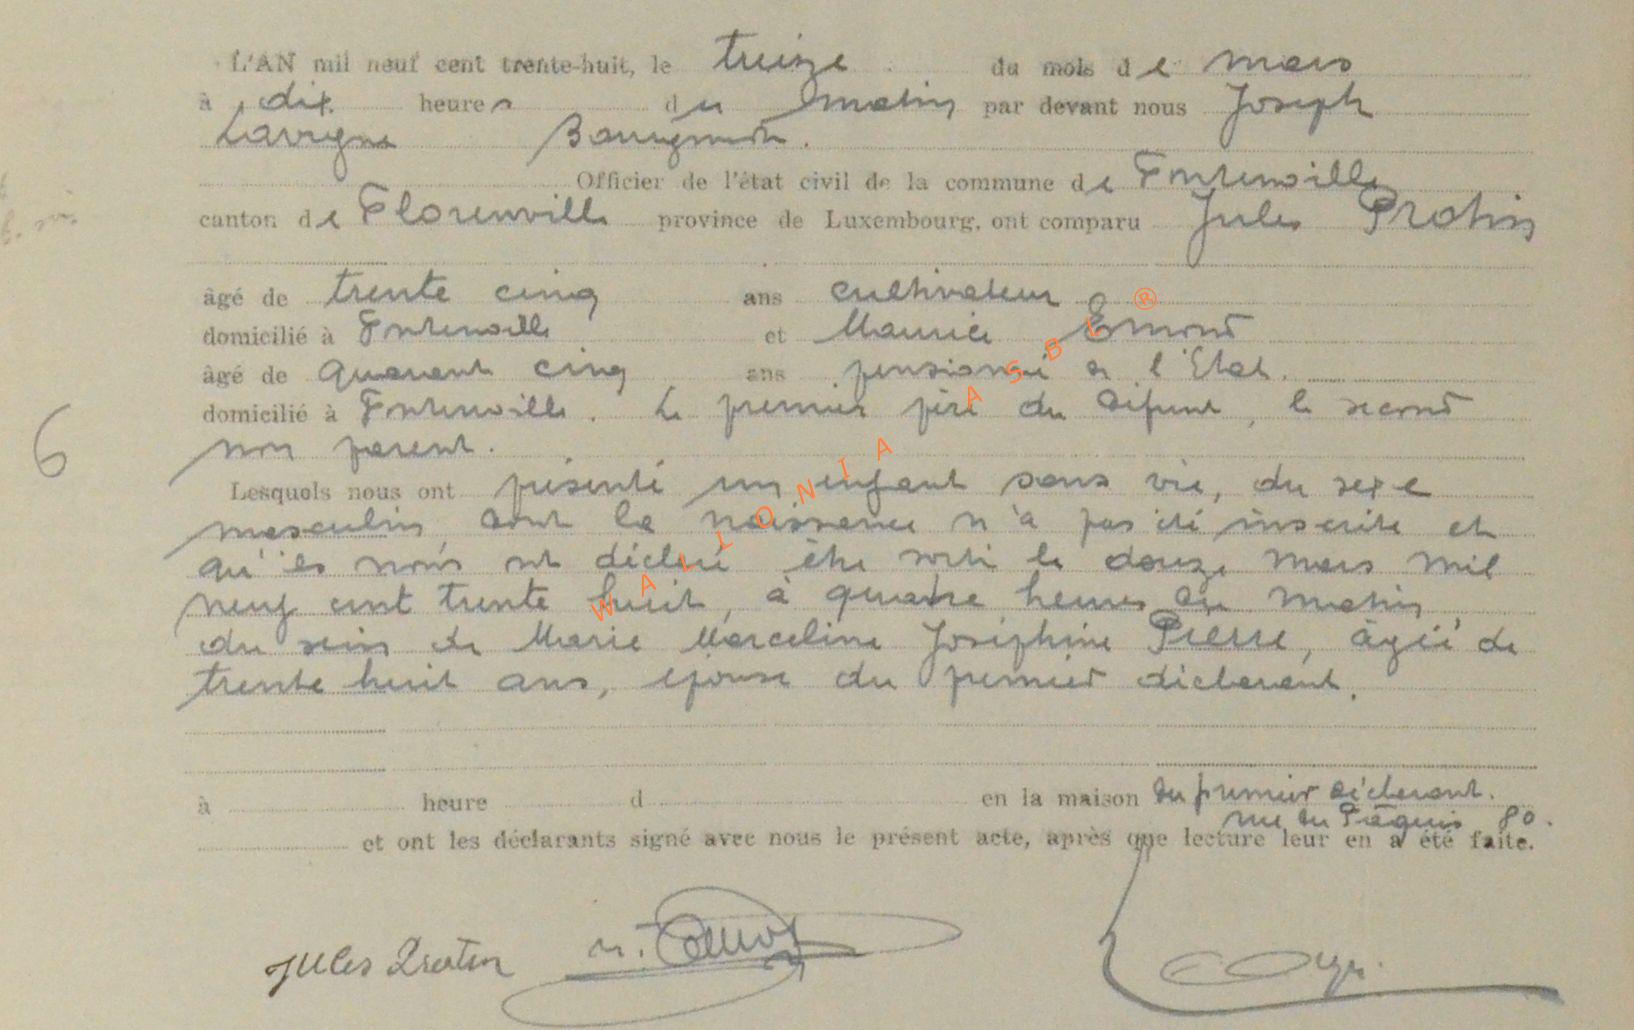 L'AN mil neuf cent trente-huit, le treize du mois de mars
à dix heures du matin par devant nous Joseph
Lavigne Bourguignon.
Officier de l'état civil de la commune de Fontenoille
canton de Florenville province de Luxembourg, ont comparu Jules Protin
âgé de trente cinq ans cultivateur
domicilié à Fontenoille et Maurice Emond
âgé de quarant cinq ans pensionné de l'Etat.
domicilié à Fontenoille. Le premier père du défunt, le second
non parent.
6
Lesquels nous ont présenté un enfant sans vie, du sexe
masculin dont la naissance n'a pas été inscrite et
qu'ils nous ont déclaré être sorti le douze mars mil
neuf cent trente huit, à quatre heures du matin
du sein de Marie Marceline Joséphine Pierre, âgée de
trente huit ans, épouse du premier déclarant.
à heure d en la maison du premier déclarant.
rue du 80.
et ont les déclarants signé avec nous le présent acte, après que lecture leur en a été faite.
Jules Protin M. Emond
WALLONIA ASBL ®